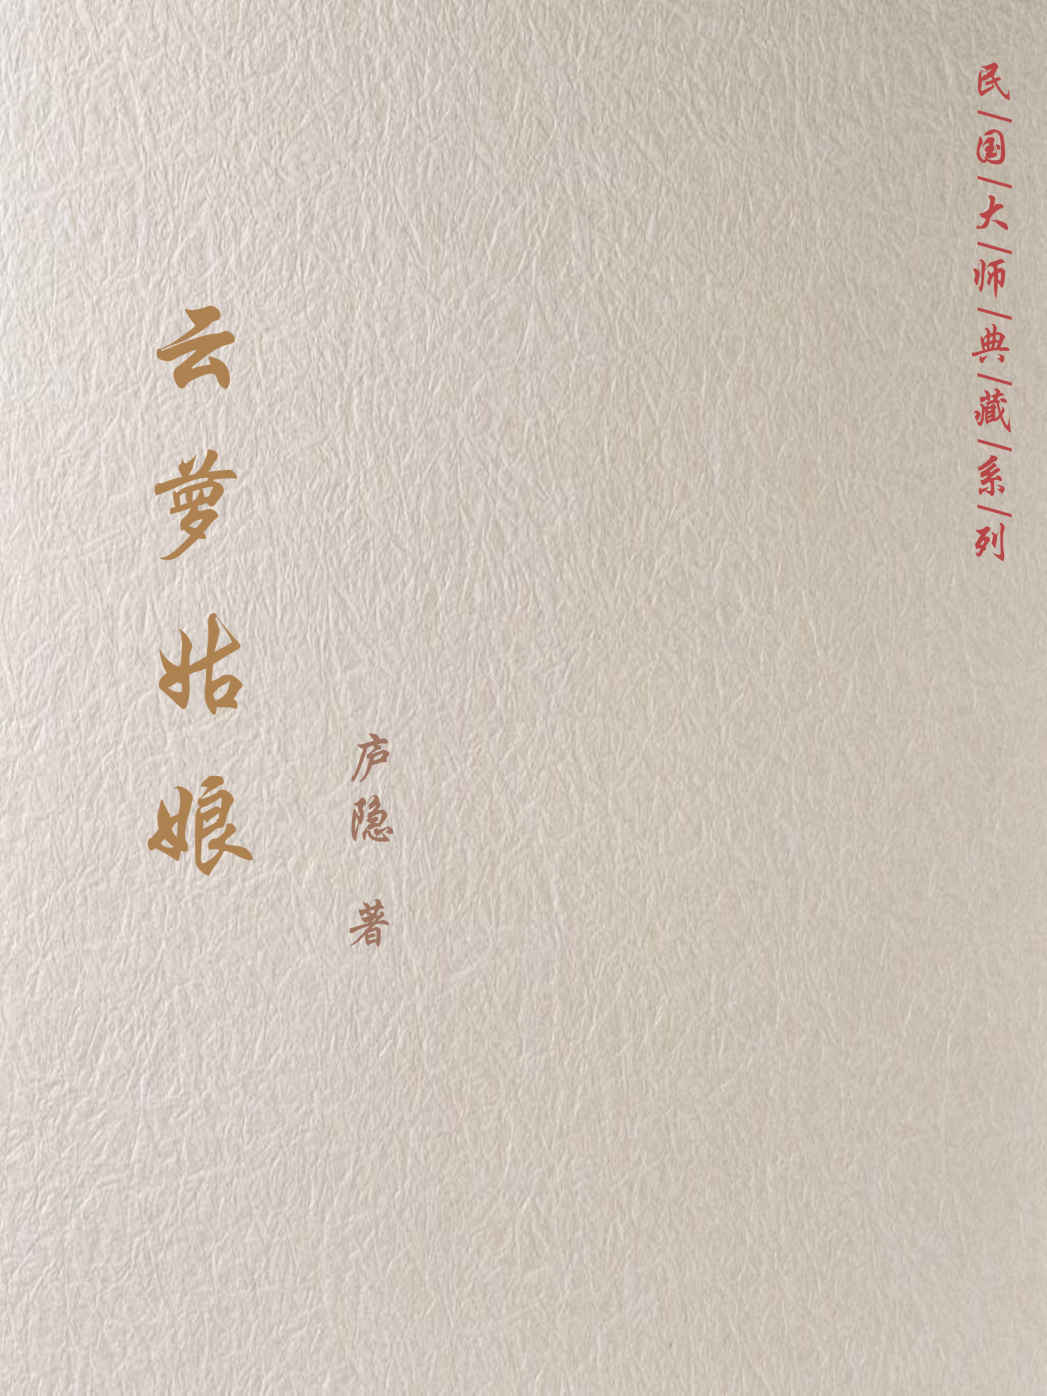 民/国/大/师/典/藏/系/列
云萝姑娘
庐隐 著